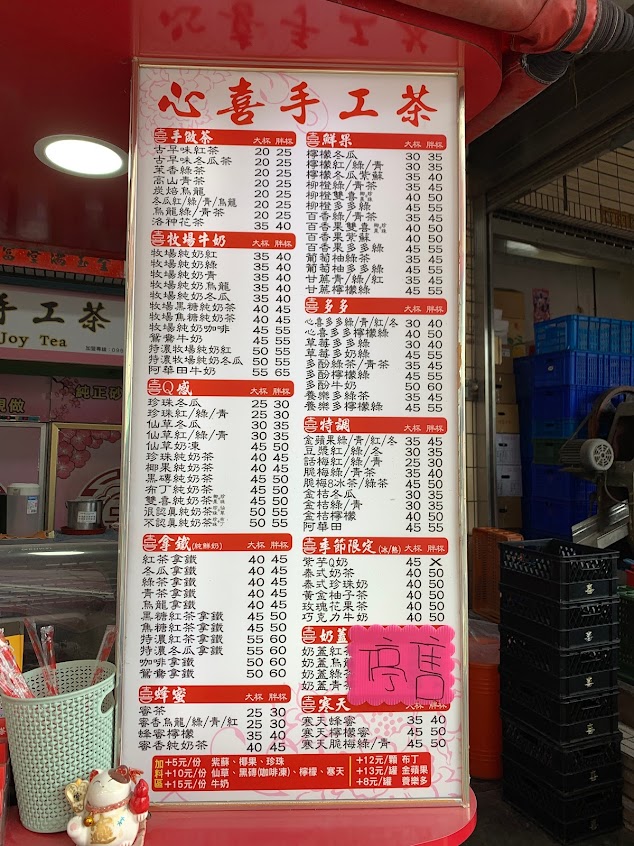 心喜手工茶
喜手做茶 大杯 胖杯
古早味紅茶 20 25
古早味冬瓜茶 20 25
茉香綠茶 20 25
高山青茶 20 25
炭焙烏龍 20 25
冬瓜紅/綠/青/烏龍 20 25
烏龍綠/青茶 20 25
洛神花茶 35 40
喜牧場牛奶 大杯 胖杯
牧場純奶紅 35 40
牧場純奶綠 35 40
牧場純奶青 35 40
牧場純奶烏龍 35 40
牧場純奶冬瓜 35 40
牧場黑糖純奶茶 40 45
牧場焦糖純奶茶 40 45
牧場純奶咖啡 45 55
鴛鴦牛奶 45 55
特濃牧場純奶紅 50 55
特濃牧場純奶冬瓜 50 55
阿華田牛奶 55 65
喜Q感 大杯 胖杯
珍珠冬瓜 25 30
珍珠紅/綠/青 25 30
仙草冬瓜 30 35
仙草紅/綠/青 30 35
仙草奶凍 45 50
珍珠純奶茶 40 45
椰果純奶茶 40 45
黑磚純奶茶 45 50
布丁純奶茶 45 50
雙喜純奶茶 45 50
很認真純奶茶 50 55
不認真純奶茶 50 55
喜拿鐵(純鮮奶) 大杯 胖杯
紅茶拿鐵 40 45
冬瓜拿鐵 40 45
綠茶拿鐵 40 45
青茶拿鐵 40 45
烏龍拿鐵 40 45
黑糖紅茶拿鐵 45 50
焦糖紅茶拿鐵 45 50
特濃紅茶拿鐵 55 60
特濃冬瓜拿鐵 55 60
咖啡拿鐵 50 60
鴛鴦拿鐵 50 60
喜蜂蜜 大杯 胖杯
蜜茶 25 30
蜜香烏龍/綠/青/紅 25 30
蜂蜜檸檬 35 40
蜜香純奶茶 40 45
喜鮮果 大杯 胖杯
檸檬冬瓜 30 35
檸檬紅/綠/青 30 35
檸檬冬瓜紫蘇 35 40
柳橙綠/青茶 35 45
柳橙雙喜 40 50
柳橙多多綠 45 55
百香綠/青茶 35 45
百香果雙喜 40 50
百香果紫蘇 40 50
百香果多多綠 45 55
葡萄柚綠茶 35 45
葡萄柚多多綠 45 55
甘蔗青/綠/紅 35 45
甘蔗檸檬綠 45 55
喜多多 大杯 胖杯
心喜多多綠/青/紅/冬 30 40
心喜多多檸檬綠 40 50
草莓多多綠 30 40
草莓多奶綠 45 55
多酚綠茶/青茶 35 45
多酚檸檬綠 45 55
多酚牛奶 50 60
養樂多綠茶 35 45
養樂多檸檬綠 45 55
喜特調 大杯 胖杯
金蘋果綠/青/紅/冬 35 45
豆漿紅/綠/冬 30 35
話梅紅/綠/青 25 30
脆梅綠/青茶 35 40
脆梅8冰茶/綠茶 45 50
金桔冬瓜 30 35
金桔綠/青 30 35
金桔檸檬 40 50
阿華田 45 55
喜季節限定(冰/熱) 大杯 胖杯
紫芋Q奶 45 X
泰式奶茶 40 50
泰式珍珠奶 40 50
黃金柚子茶 40 50
玫瑰花果茶 40 50
巧克力牛奶 40 50
喜奶蓋
奶蓋紅
奶蓋烏
奶蓋綠
奶蓋青
停售
喜寒天 大杯 胖杯
寒天蜂蜜 35 40
寒天檸檬蜜 45 50
寒天脆梅綠/青 45 50
加料區
+5元/份 紫蘇、椰果、珍珠
+10元/份 仙草、黑磚(咖啡凍)、檸檬、寒天
+15元/份 牛奶
+12元/顆 布丁
+13元/罐 金蘋果
+8元/罐 養樂多
手工茶
Joy Tea
純正砂
現做